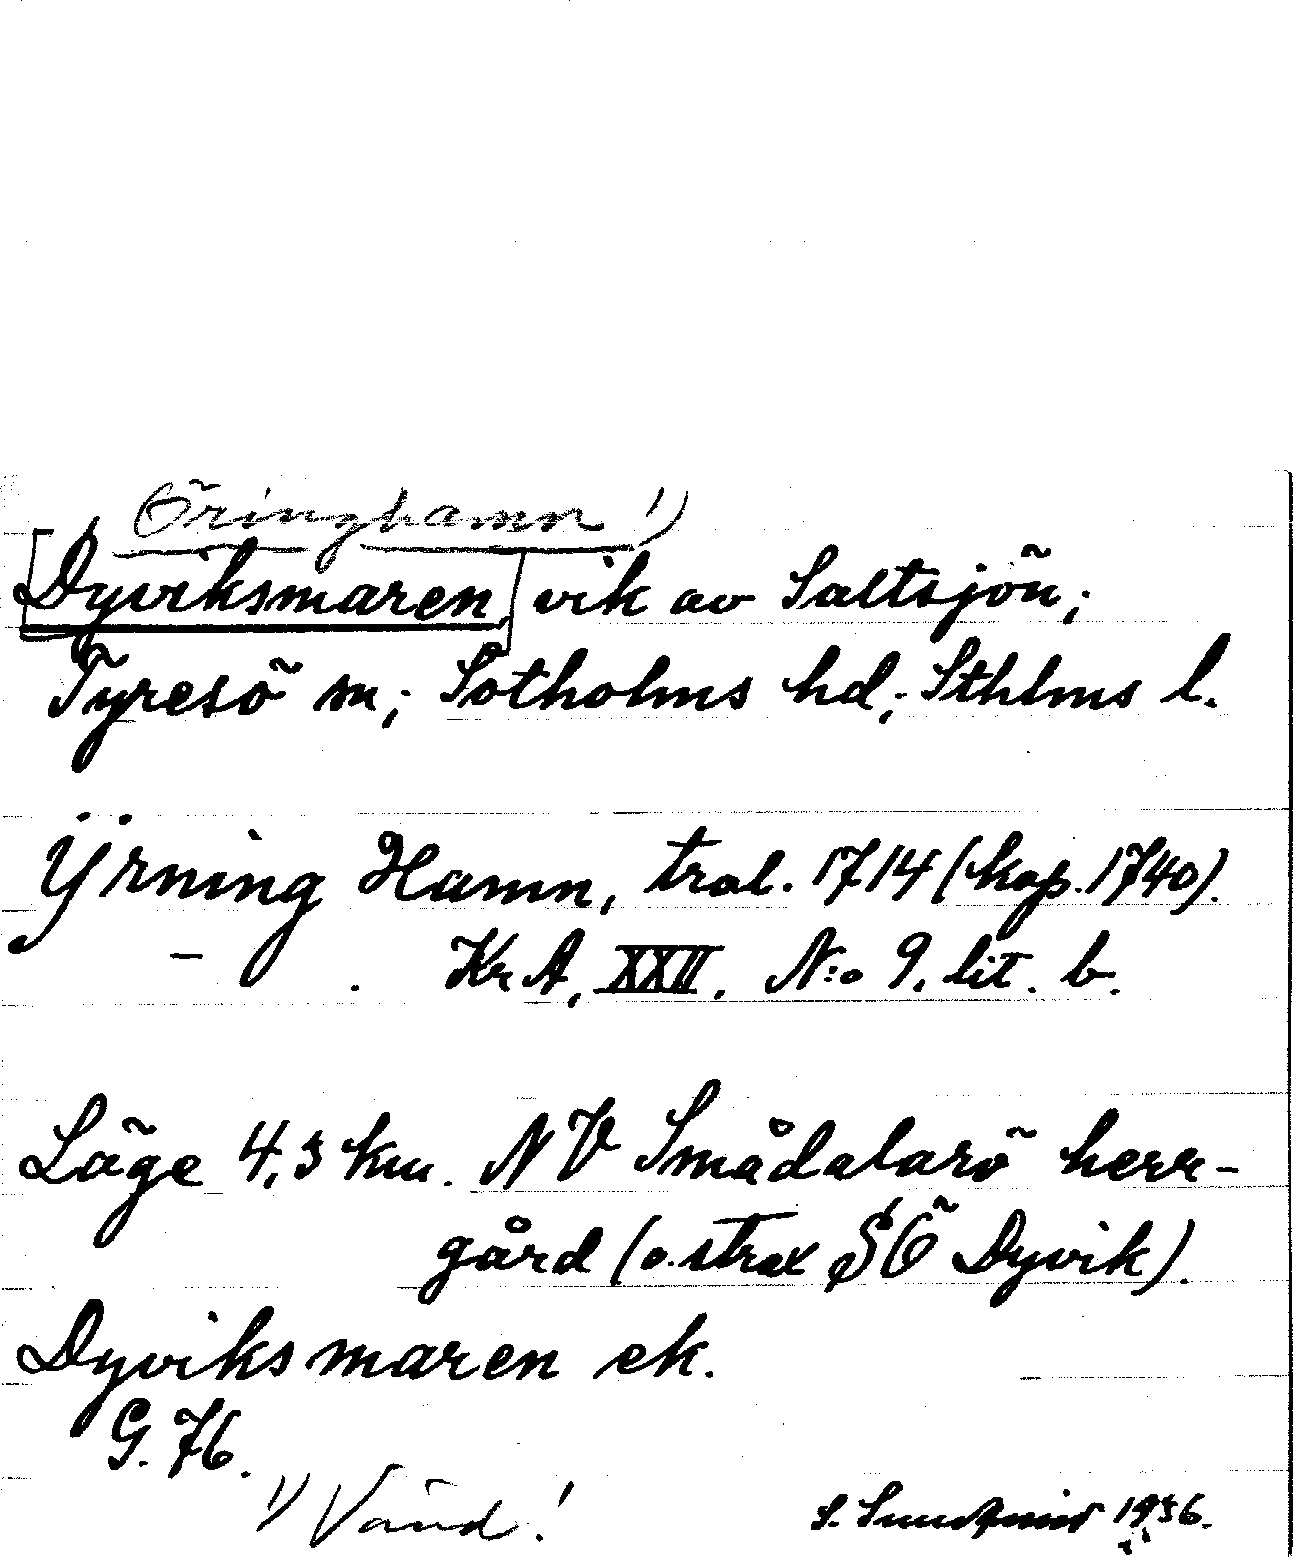 Öringhamn 1)
[Dyviksmaren,] vik av Saltsjön;
Tyresö sn; Sotholms hd; Sthlms l.
Ÿrning Hamn, tral. 1714 (kop. 1740).
— . Kr A, XXII. N:o 9. lit. b.
Läge 4,3 km. NV Smådalarö herr-
gård (o. strax SÖ Dyvik).
Dyviksmaren ek.
G. 76.
1) Vänd!
S. 1936.